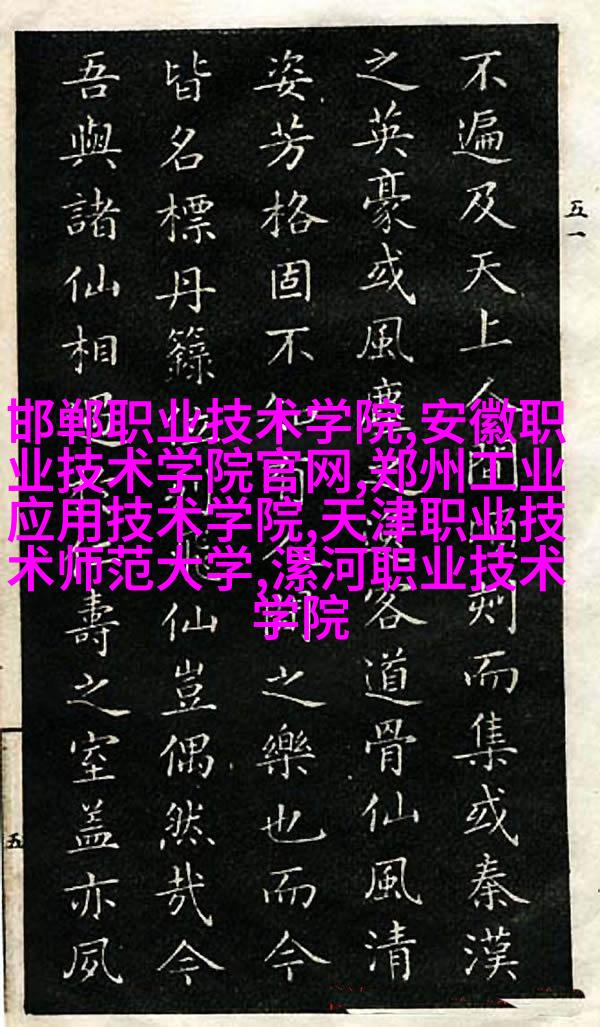 邯郸职业技术学院,安徽职
业技术学院官网,郑州工业
应用技术学院,天津职业技
术师范大学,漯河职业技术
学院
五一
不遍及天上人間刻而集或秦漢
之英豪或風塵客道骨仙風清
姿芳格固不知有人間之樂也而今
皆名標丹籙飛仙豈偶然哉今
吾與諸仙相遇壽之室盖亦夙
五